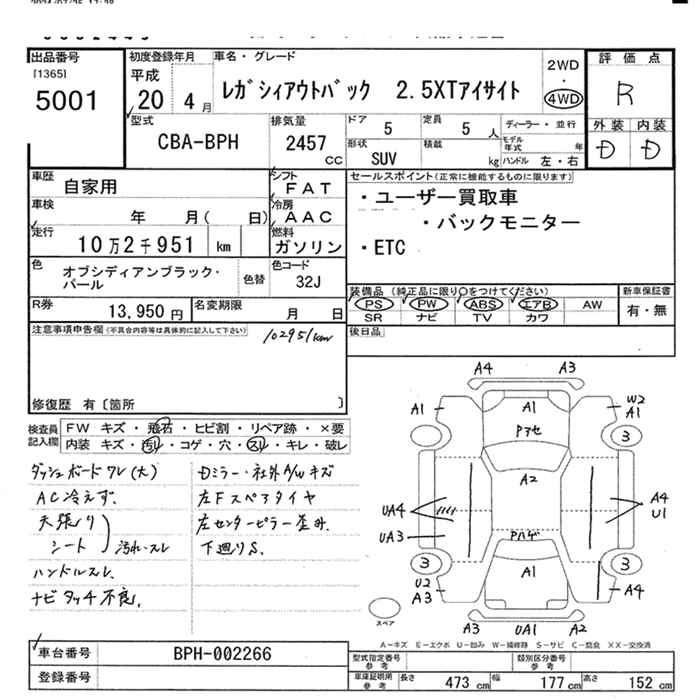 出品番号
[1365]
5001
初度登録年月
平成
20 4月
車名・グレード
レガシィアウトバック 2.5XTアイサイト
2WD
・
4WD
評価点
R
外装 内装
D D
型式
CBA-BPH
排気量
2457
CC
ドア 5
定員 5 人
形状 SUV
積載 kg
ディーラー・並行
モデル年式 年
ハンドル 左・右
車歴
自家用
シフト
FAT
車検
年 月( 日)
冷房
AAC
走行
10万2千951 km
燃料
ガソリン
セールスポイント(正常に機能するものに限ります)
・ユーザー買取車
・バックモニター
・ETC
色
オブシディアンブラック・
パール
色替
色コード
32J
R券
13,950円
名変期限
月 日
装備品 (純正品に限り○をつけてください)
PS PW ABS エアB AW
SR ナビ TV カワ
新車保証書
有・無
注意事項申告欄(不具合内容等は具体的に記入して下さい)
102951km
後日品
修復歴 有〔箇所 〕
検査員
記入欄
FW キズ・飛石・ヒビ割・リペア跡・×要
内装 キズ・汚れ・コゲ・穴・スレ・キレ・破レ
ダッシュボードワレ(大)
AC冷えず.
天張り
シート
汚れ・スレ
ハンドルスレ.
ナビタッチ不良.
Dミラー・社外A/Wキズ
左Fスペアタイヤ
左センターピラー歪み.
下廻りS.
A4 A3
A1 A1 W2
A1
Pアセ
3 3
A2
UA4 A4
U1
UA3
Pハゲ
3 3
A1
U2
A3 A4
A3 UA1 A2
スペア
A－キズ E－エクボ U－凹み W－補修跡 S－サビ C－腐食 XX－交換済
車台番号
BPH-002266
登録番号
型式指定番号
参考
類別区分番号
参考
車庫証明用
参考
長さ 473 cm 幅 177 cm 高さ 152 cm